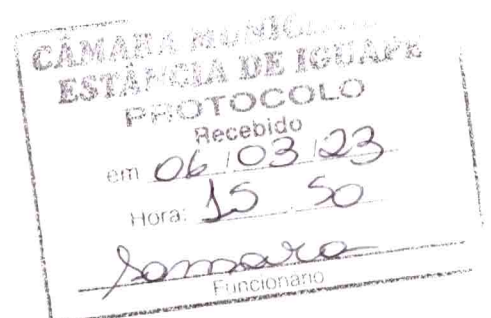 CÂMARA MUNICIPAL
ESTÂNCIA DE IGUAPE
PROTOCOLO
Recebido
em 06/03/23
Hora: 15 50
Samara
Funcionário